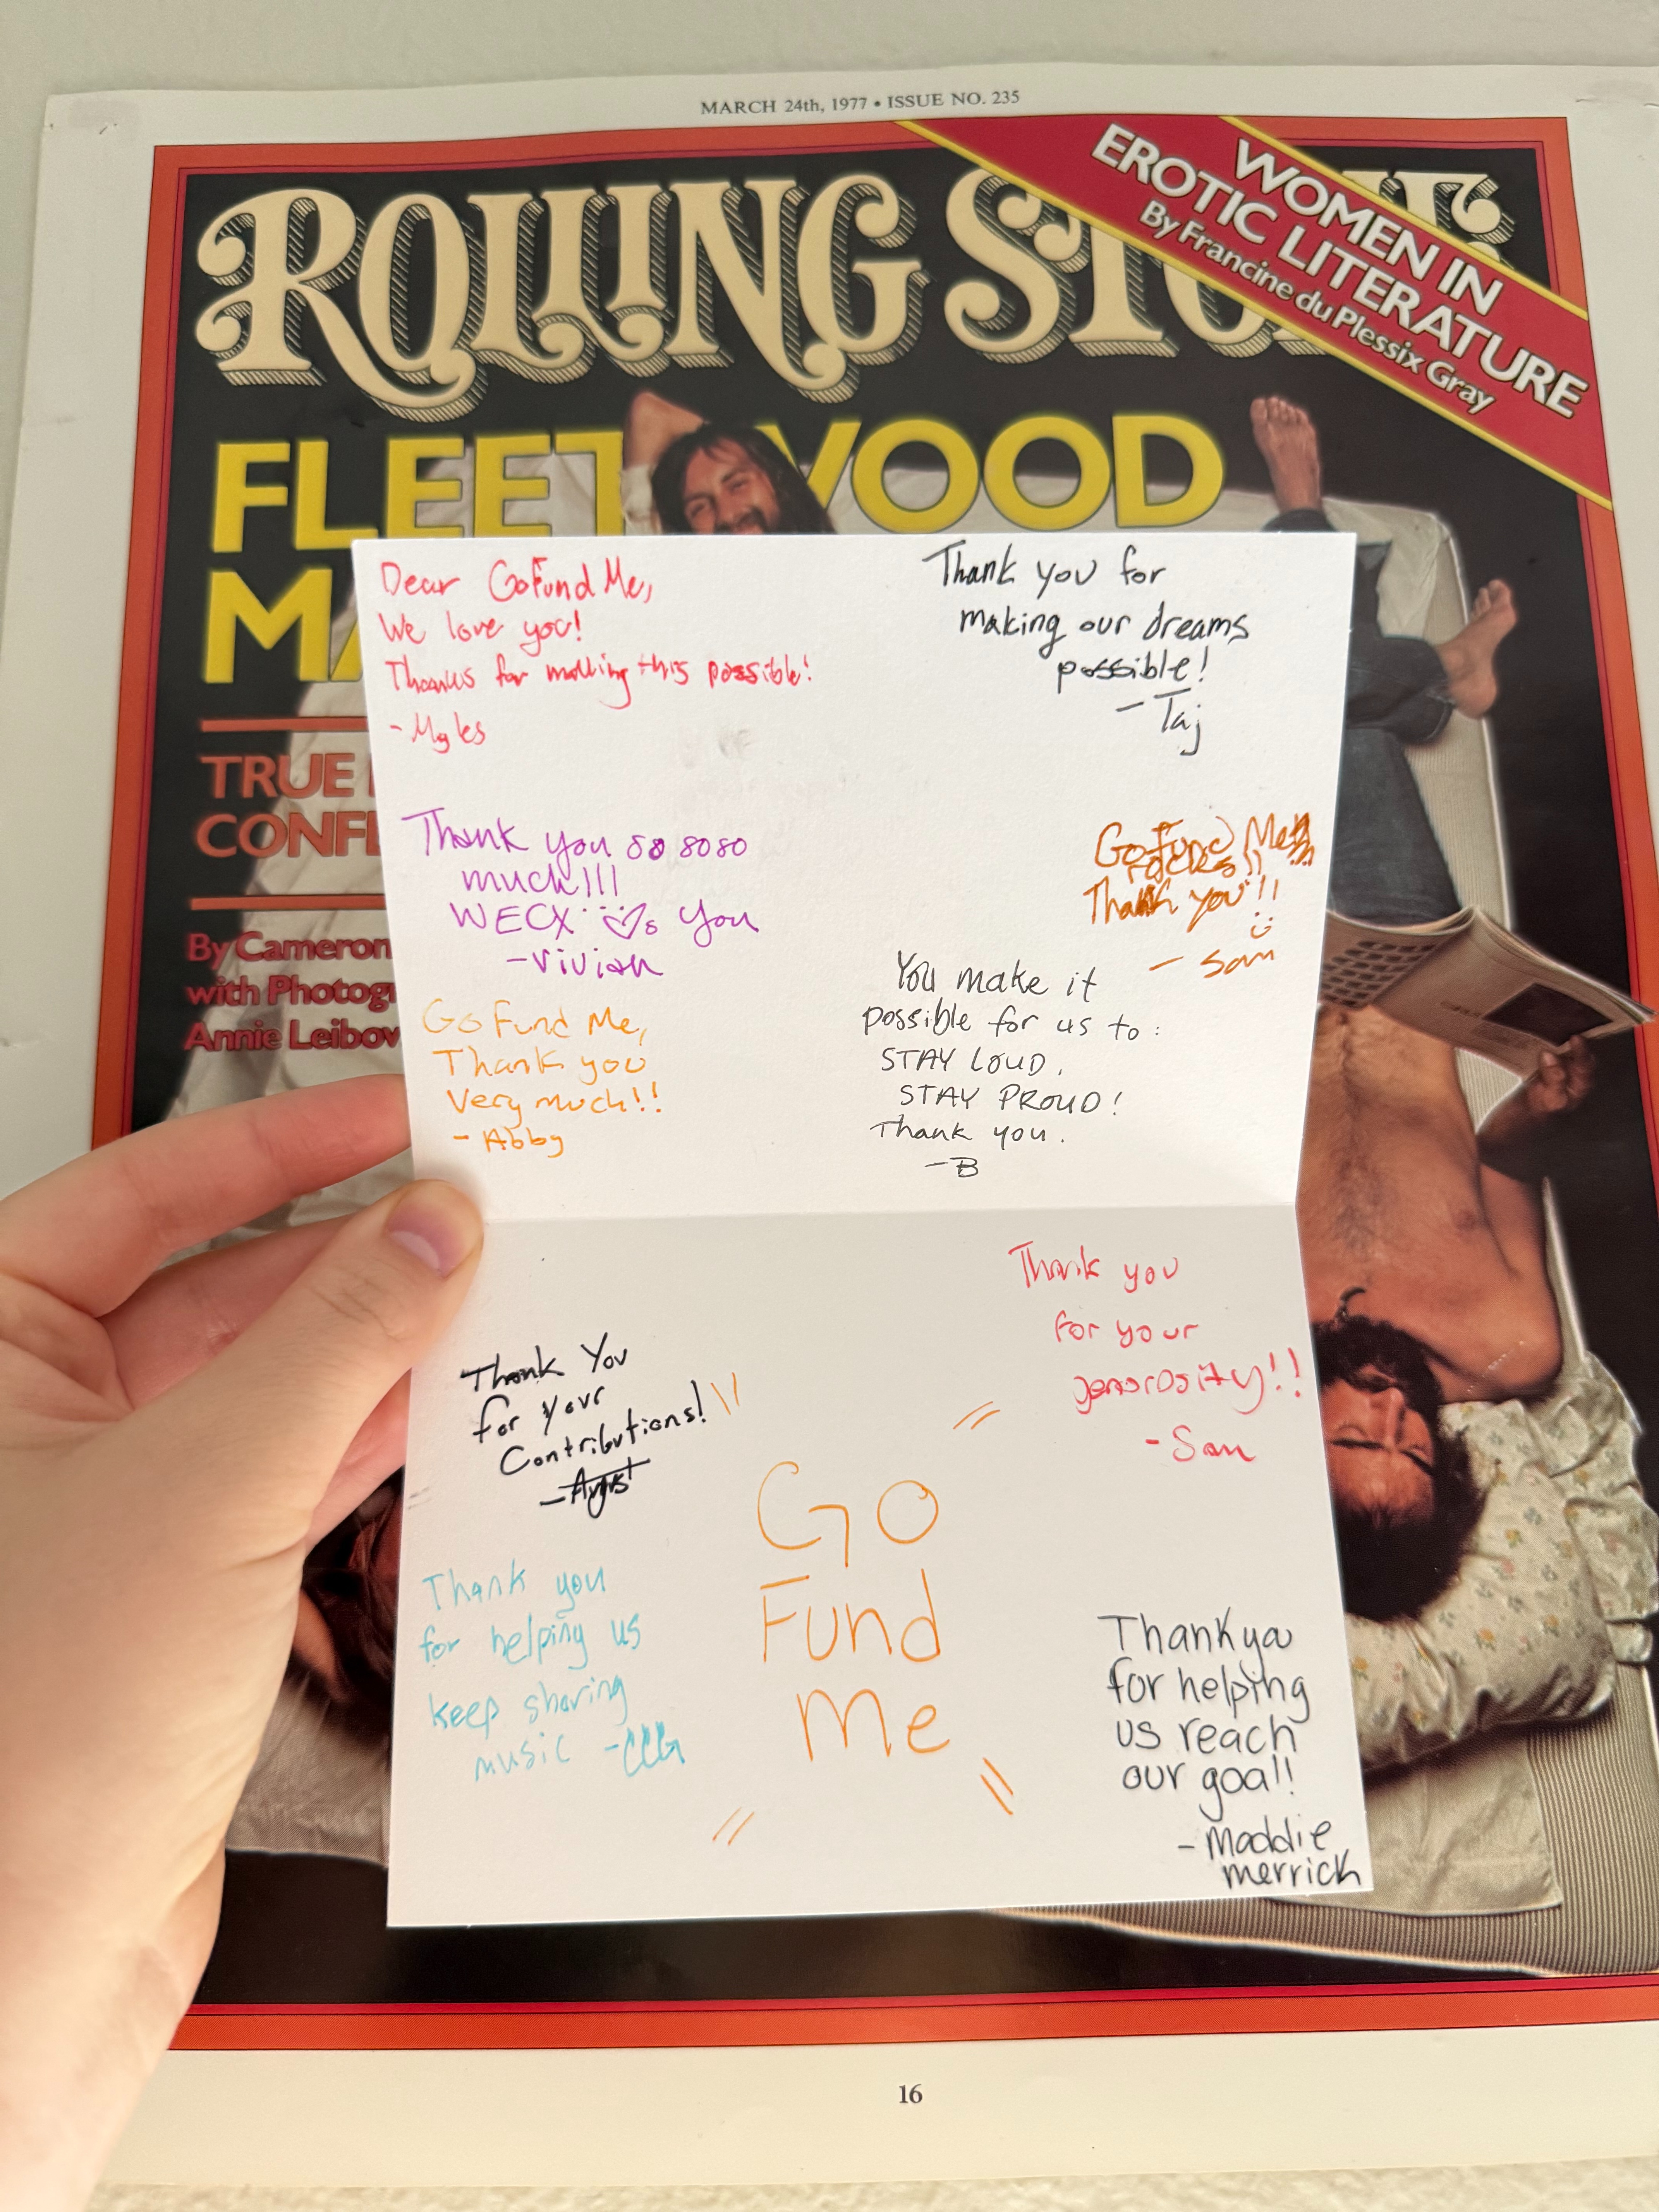 MARCH 24th, 1977 • ISSUE NO. 235
ROLLING STONE
WOMEN IN
EROTIC LITERATURE
By Francine du Plessix Gray
FLEETWOOD
MA
TRUE
CONFE
By Cameron
with Photog
Annie Leibov
Dear GoFundMe,
We love you!
Thanks for making this possible!
- Myles
Thank you for
making our dreams
possible!
- Taj
Thank you so soso
much!!!
WECX ♡s you
- vivian
GoFund Me
rocks!!
Thank you!!
- Sam
Go Fund Me,
Thank you
Very much!!
- Abby
You make it
possible for us to:
STAY LOUD,
STAY PROUD!
Thank you.
- B
Thank You
for your
Contributions!
Thank you
for your
generosity!!
- Sam
Thank you
for helping us
keep sharing
music
Go
Fund
Me
Thank you
for helping
us reach
our goal!
- Maddie
merrick
16